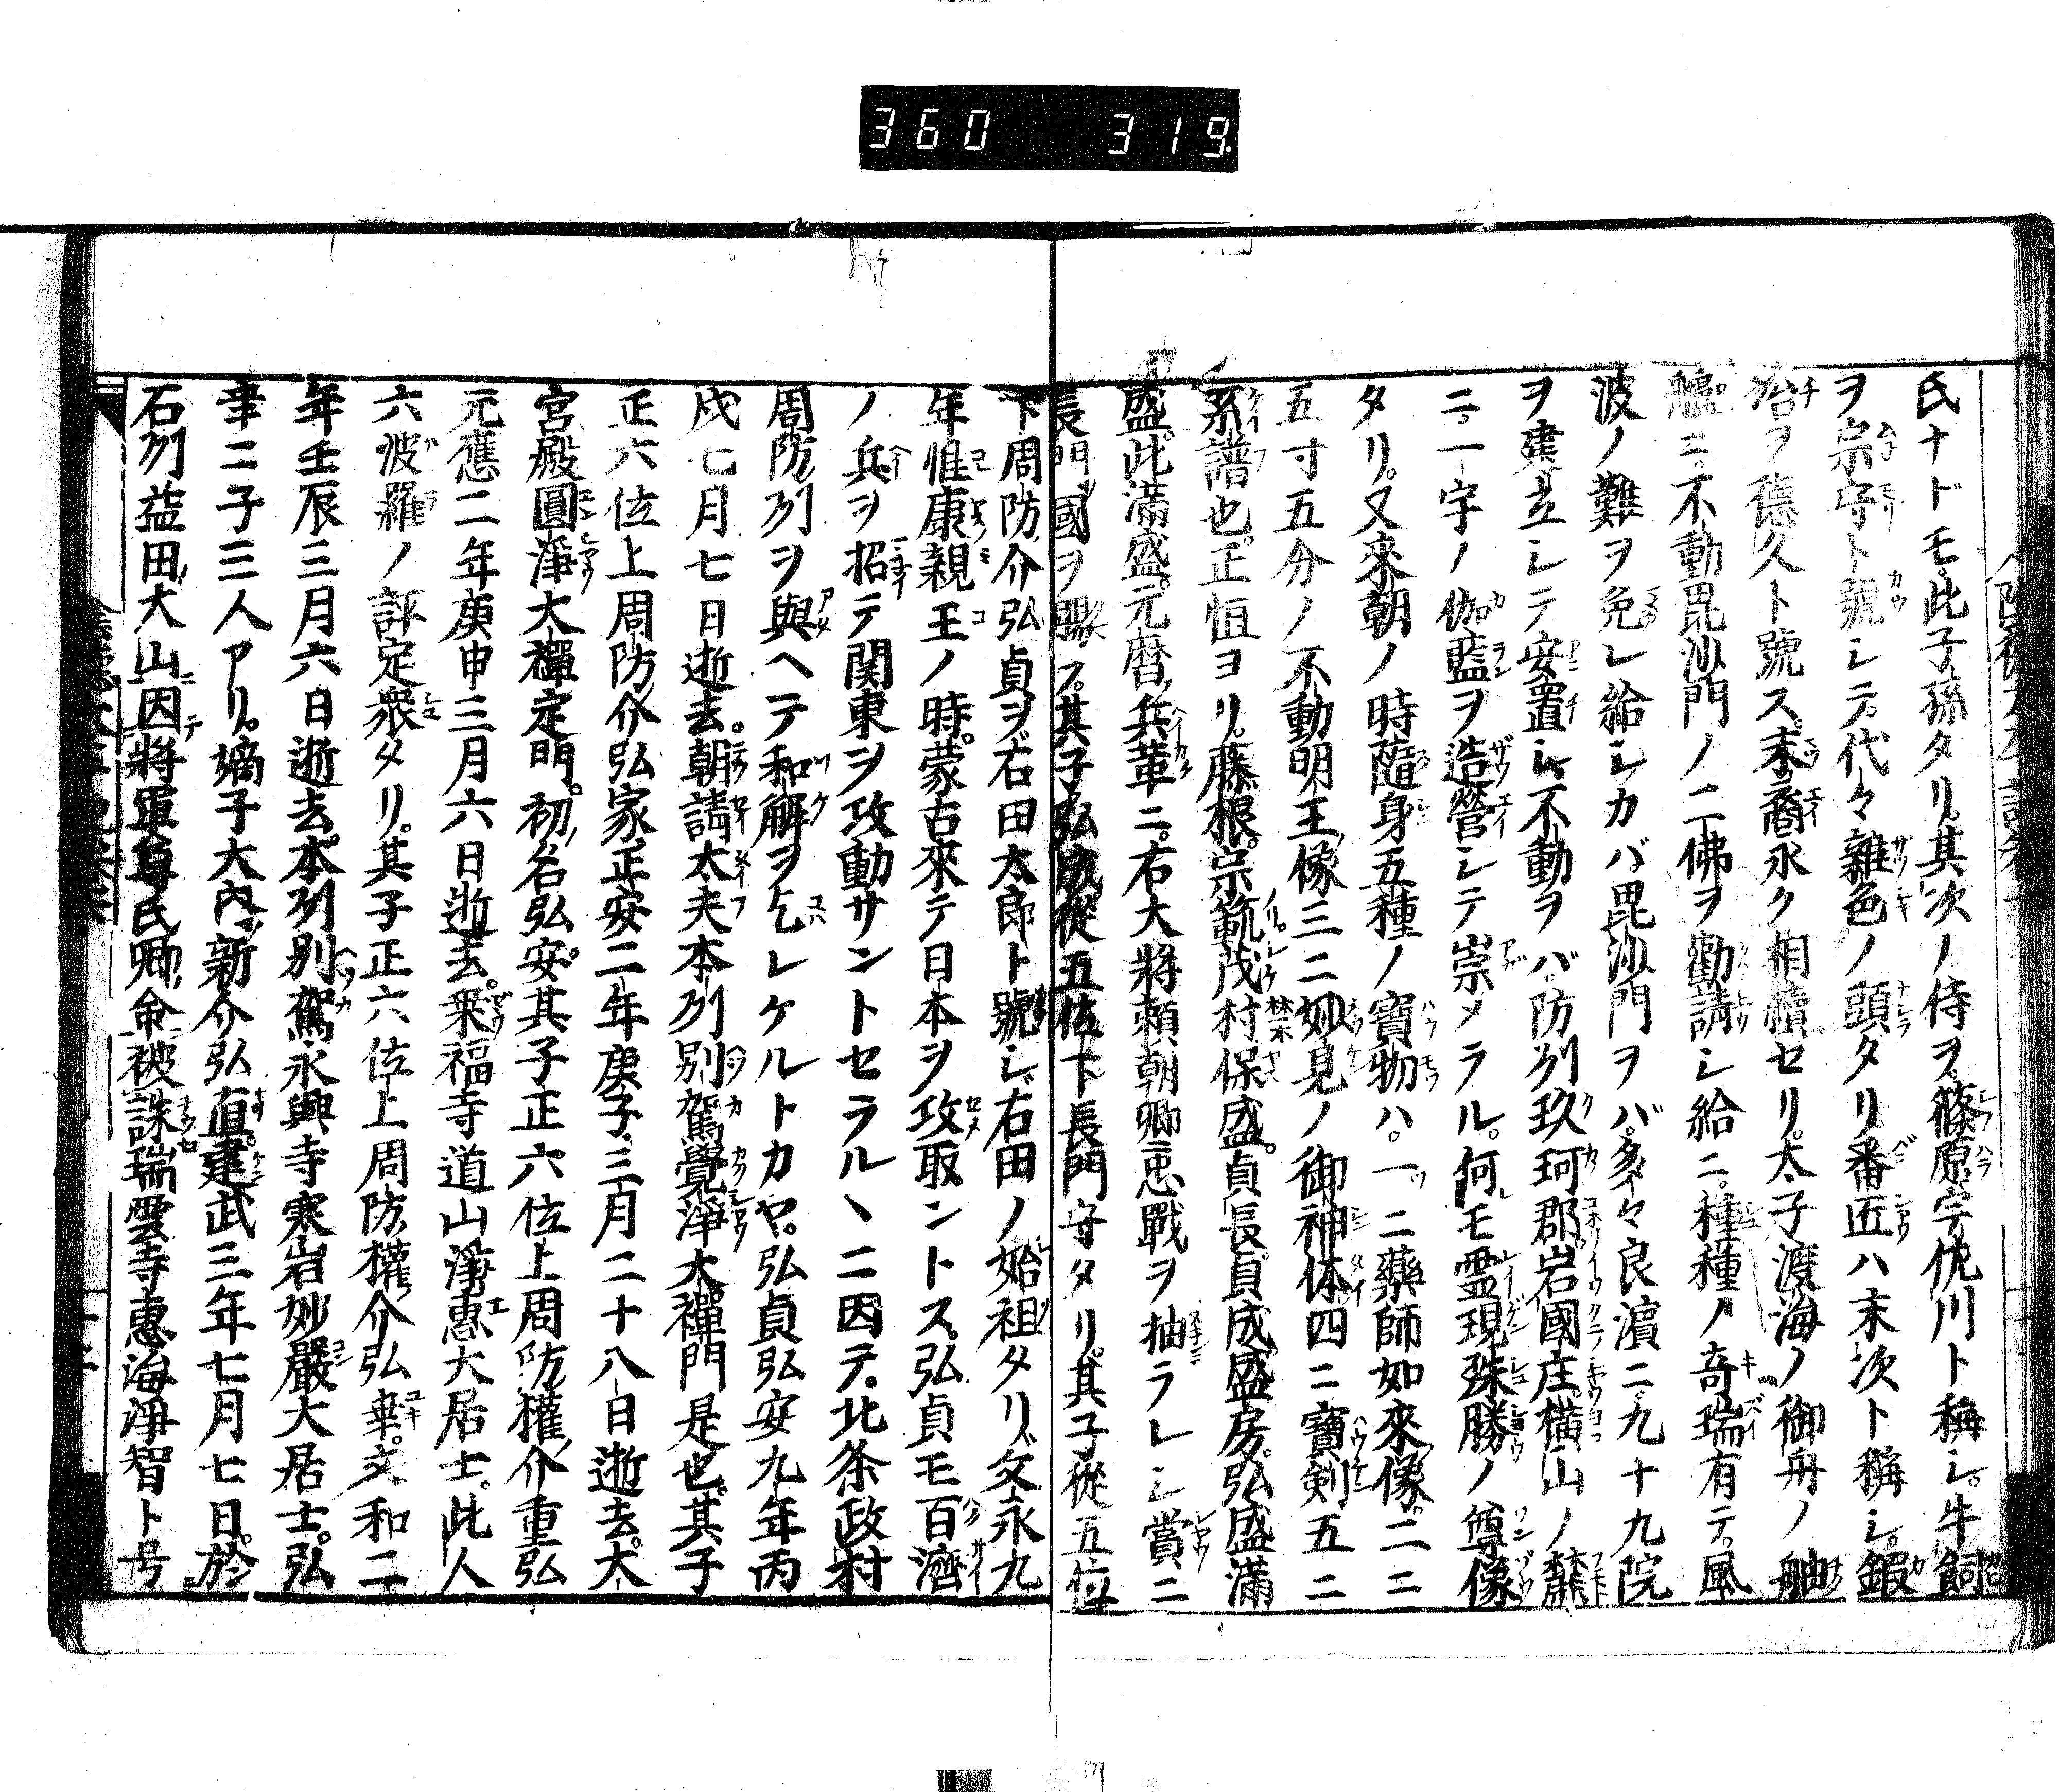 360 319
氏ナドモ。此子孫タリ。其次ノ侍ヲ。篠原宇佐川ト稱シ。牛飼
ヲ宗守ト號シテ。代々雜色ノ頭タリ。番匠ハ末次ト稱シ。鍜
冶ヲ德久ト號ス。末裔永ク相續セリ。太子渡海ノ御舟ノ舳
艫ニ。不動毘沙門ノ二佛ヲ勸請シ給ニ。種種ノ奇瑞有テ。風
波ノ難ヲ免レ給シカバ。毘沙門ヲバ。多々良濱ニ九十九院
ヲ建立シテ安置シ。不動ヲバ防州玖珂郡岩國庄橫山ノ麓
ニ。一宇ノ伽藍ヲ造營シテ崇メラル。何モ霊現殊勝ノ尊像
タリ。又來朝ノ時隨身五種ノ寶物ハ。一ニ藥師如來像二ニ
五寸五分ノ不動明王像三ニ妙見ノ御神体四ニ寶剣五ニ
系譜也。正恒ヨリ。藤根。宗範茂村保盛。貞長貞成盛房。弘盛滿
盛。此滿盛。元暦兵革ニ。右大將頼朝卿忠戰ヲ抽ラレシ賞ニ
長門國ヲ賜フ。其子弘成從五位下長門守タリ。其子從五位
下周防介弘貞ヲ右田太郎ト號シ右田ノ始祖タリ。文永九
年惟康親王ノ時。蒙古來テ日本ヲ攻取ントス。弘貞モ百濟
ノ兵ヲ招テ関東ヲ攻動サントセラルヽニ因テ。北条政村
周防州ヲ與ヘテ和解ヲ乞レケルトカヤ。弘貞弘安九年丙
戌七月七日逝去。朝請太夫本州別駕覺淨大禪門是也。其子
正六位上周防介弘家正安二年庚子三月二十八日逝去。大
宮殿圓淨大禪定門。初名弘安。其子正六位上周防權介重弘
元應二年庚申三月六日逝去。乘福寺道山淨惠大居士。此人
六波羅ノ評定衆タリ。其子正六位上周防權介弘幸。文和二
年壬辰三月六日逝去。本州別駕永興寺寒岩妙嚴大居士。弘
幸二子三人アリ。嫡子大內新介弘直建武三年七月七日。於
石州益田大山因將軍尊氏卿命被誅瑞雲寺惠海淨智ト号